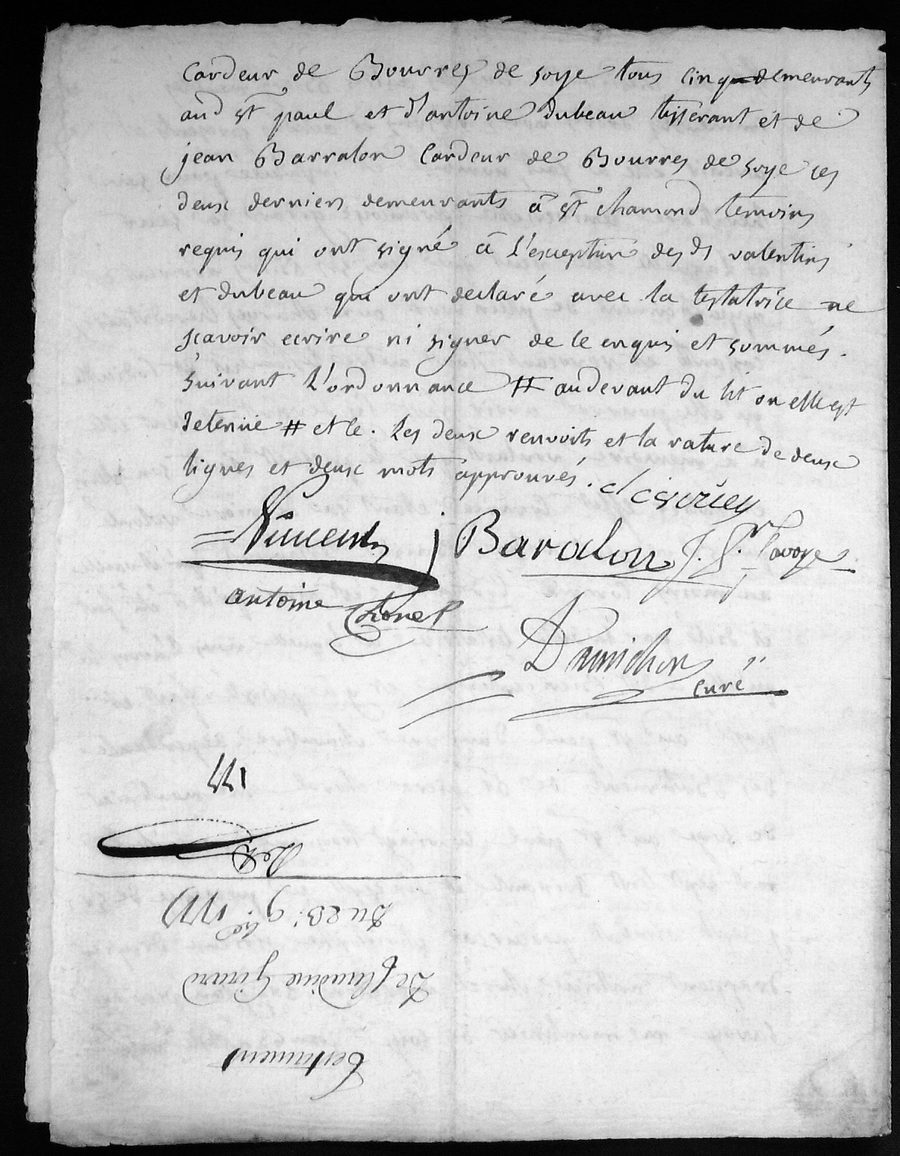 Cardeur de Bourres de soye tous cinq demeurants
aud st paul et d'antoine dubeau tisserant et de
jean Barralon Cardeur de Bourres de soye ces
deux derniers demeurants à st chamond temoins
requis qui ont signé à L'exception des ds valentins
et dubeau qui ont declaré avec la testatrice ne
sçavoir ecrire ni signer de ce enquis et sommés.
suivant L'ordonnance # audevant du lit ou elle est
detenue # et le. Les deux renvoits et la rature de deux
lignes et deux mots approuvés.
Vincent j Baralon J.
antoine
curé
Testament
De Claudine Girard
Du 23. 9bre